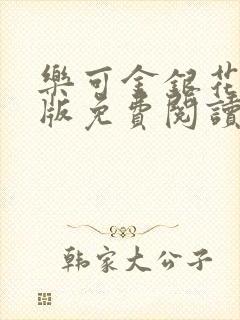 樂可金銀花
版免費閱讀
韩家大公子